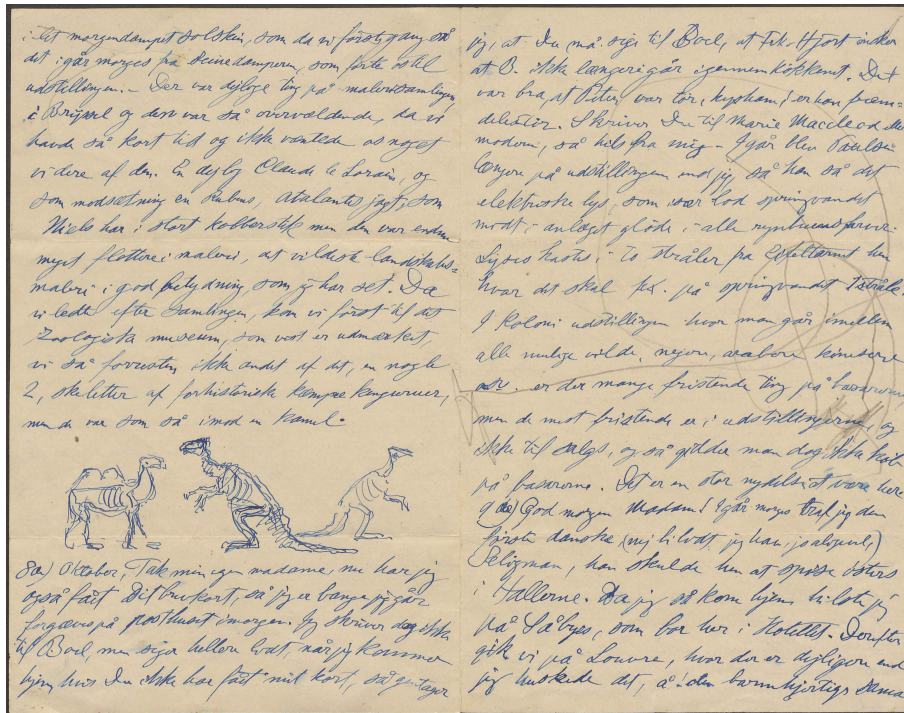 i let morgendampet solskin, som da vi første gang så
det i går morges på Seinedamperen, som førte os til
udstillingen. – Der var dejlige ting på malerisamlingen
i Bryssel og den var så overvældende, da vi
havde så kort tid og ikke ventede os noget
videre af den. En dejlig Claude le Lorain, og
som modsætning en Rubens, Atalantes jagt, som
Niels har i stort kobberstik men den var endnu
meget flottere i maleri, det vildeste landskabs=
maleri i god betydning som jeg har set. Da
vi ledte efter Samlingen, kom vi først til det
Zoologiske museum, som vist er udmærket,
vi så forresten ikke andet af det, en nogle
2, skeletter af forhistoriske kæmpe kænguruer,
men de var som så imod en kamel.
8de) Oktober, Tak min egen madame, nu har jeg
også fået Dit brevkort, så jeg er bange jeg går
forgæves på posthuset imorgen. Jeg skriver dog ikke
til Boel, men siger hellere hvat, når jeg kommer
hjem, hvis Du ikke har fået mit kort, så gentager
jeg, at Du må sige til Boel, at Frk. Hjort ønsker
at B. ikke længere går igennem køkkenet. Det
var bra, at Peter var tør,
Skriver Du til Marie Maccleod
modern, så hils fra mig – Igår blev Paulsen
længere på udstillingen end jeg så han så det
elektriske lys, som især lod springvandet
midt i anlæget gløde i alle regnbuens farver.
Lyset kastes i to stråler fra Eiffeltårnet hen
hvor det skal fx. på springvandet 1 stråle.
I koloni udstillingen hvor man går imellem
alle mulige vilde, negere, arabere kinesere
osv. er der mange fristende ting på basarerne,
men de mest fristende er i udstillingerne, og
ikke til salgs, og så gidder man dog ikke køb
på basarerne. Det er en stor nydelse at være her
God morgen Madam! Igår morges traf jeg den
første danske (nej tilvodt, jeg han,
Seligman, han skulde hen at spise østers
i Hallerne. Da jeg så kom hjem hilste jeg
på Såbyes, som bor her i Hotellet. Derefter
gik vi på Louvre, hvor der er dejligere end
jeg huskede det, å! den barmhjertige Sama